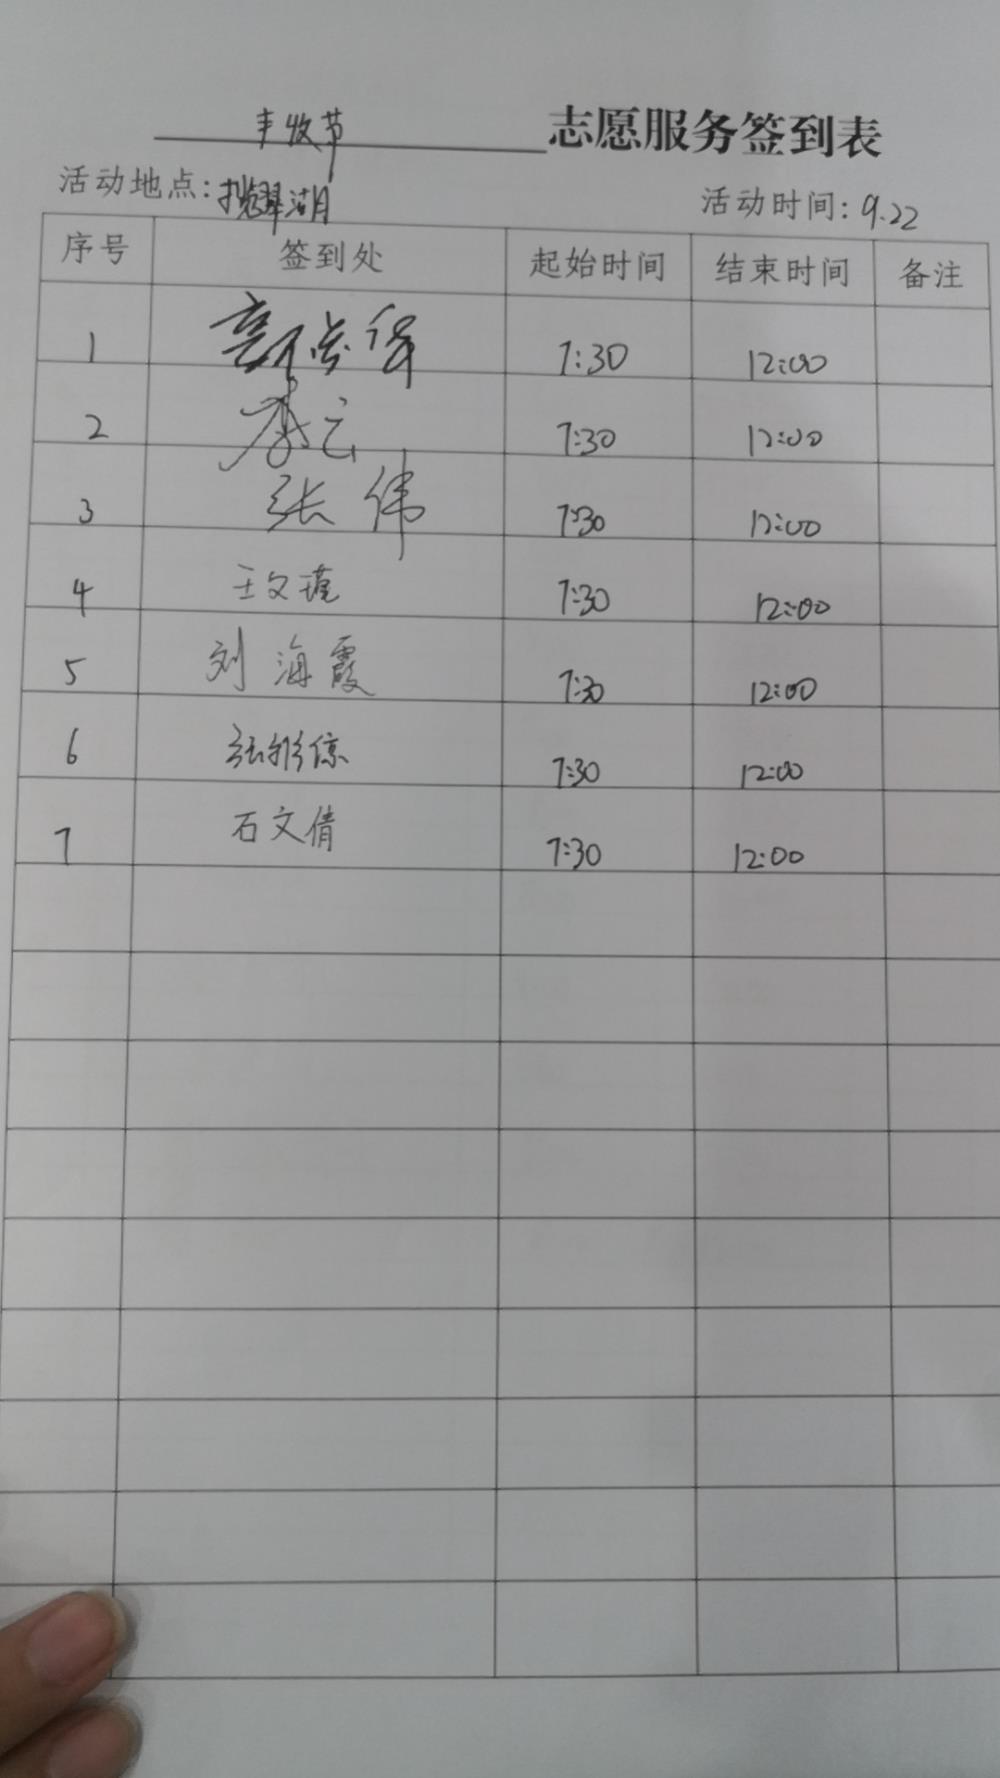 丰收节 志愿服务签到表
活动地点: 揽翠湖 活动时间: 9.22
序号 签到处 起始时间 结束时间 备注
1 7:30 12:00
2 李云 7:30 12:00
3 张伟 7:30 12:00
4 王文瑾 7:30 12:00
5 刘海霞 7:30 12:00
6 张彤倞 7:30 12:00
7 石文倩 7:30 12:00